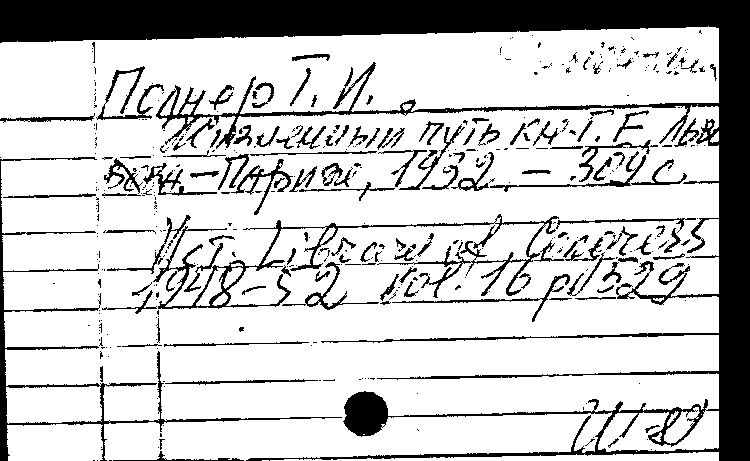 Полнер Т. И.
Жизненный путь кн. Г. Е. Льво
вова. - Париж, 1932. - 309 с.
Ист. Library of Congress
1948-52 vol. 16 p. 529